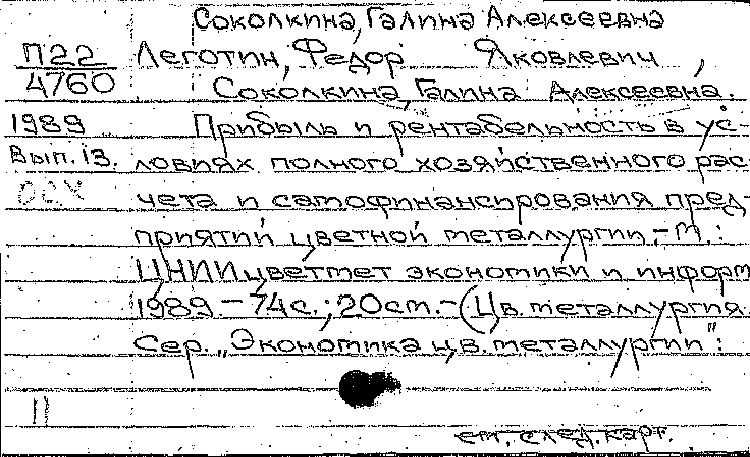 Соколкина, Галина Алексеевна
П22 Леготин, Федор Яковлевич,
4760 Соколкина, Галина Алексеевна.
1989 Прибыль и рентабельность в ус-
Вып.13. ловиях полного хозяйственного рас-
ОСХ чета и самофинансирования пред-
приятий цветной металлургии.- М.:
ЦНИИцветмет экономики и информ
1989 - 74с.; 20см.- (Цв. металлургия.
Сер. „Экономика цв. металлургии":
11
см. след. карт.